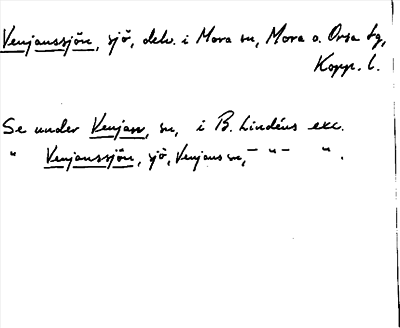 Venjanssjön, sjö, delv. i Mora sn, Mora o. Orsa tg,
Kopp. l.
Se under Venjan, sn, i B. Lindéns exc.
" Venjanssjön, sjö, Venjans sn, – " – " .